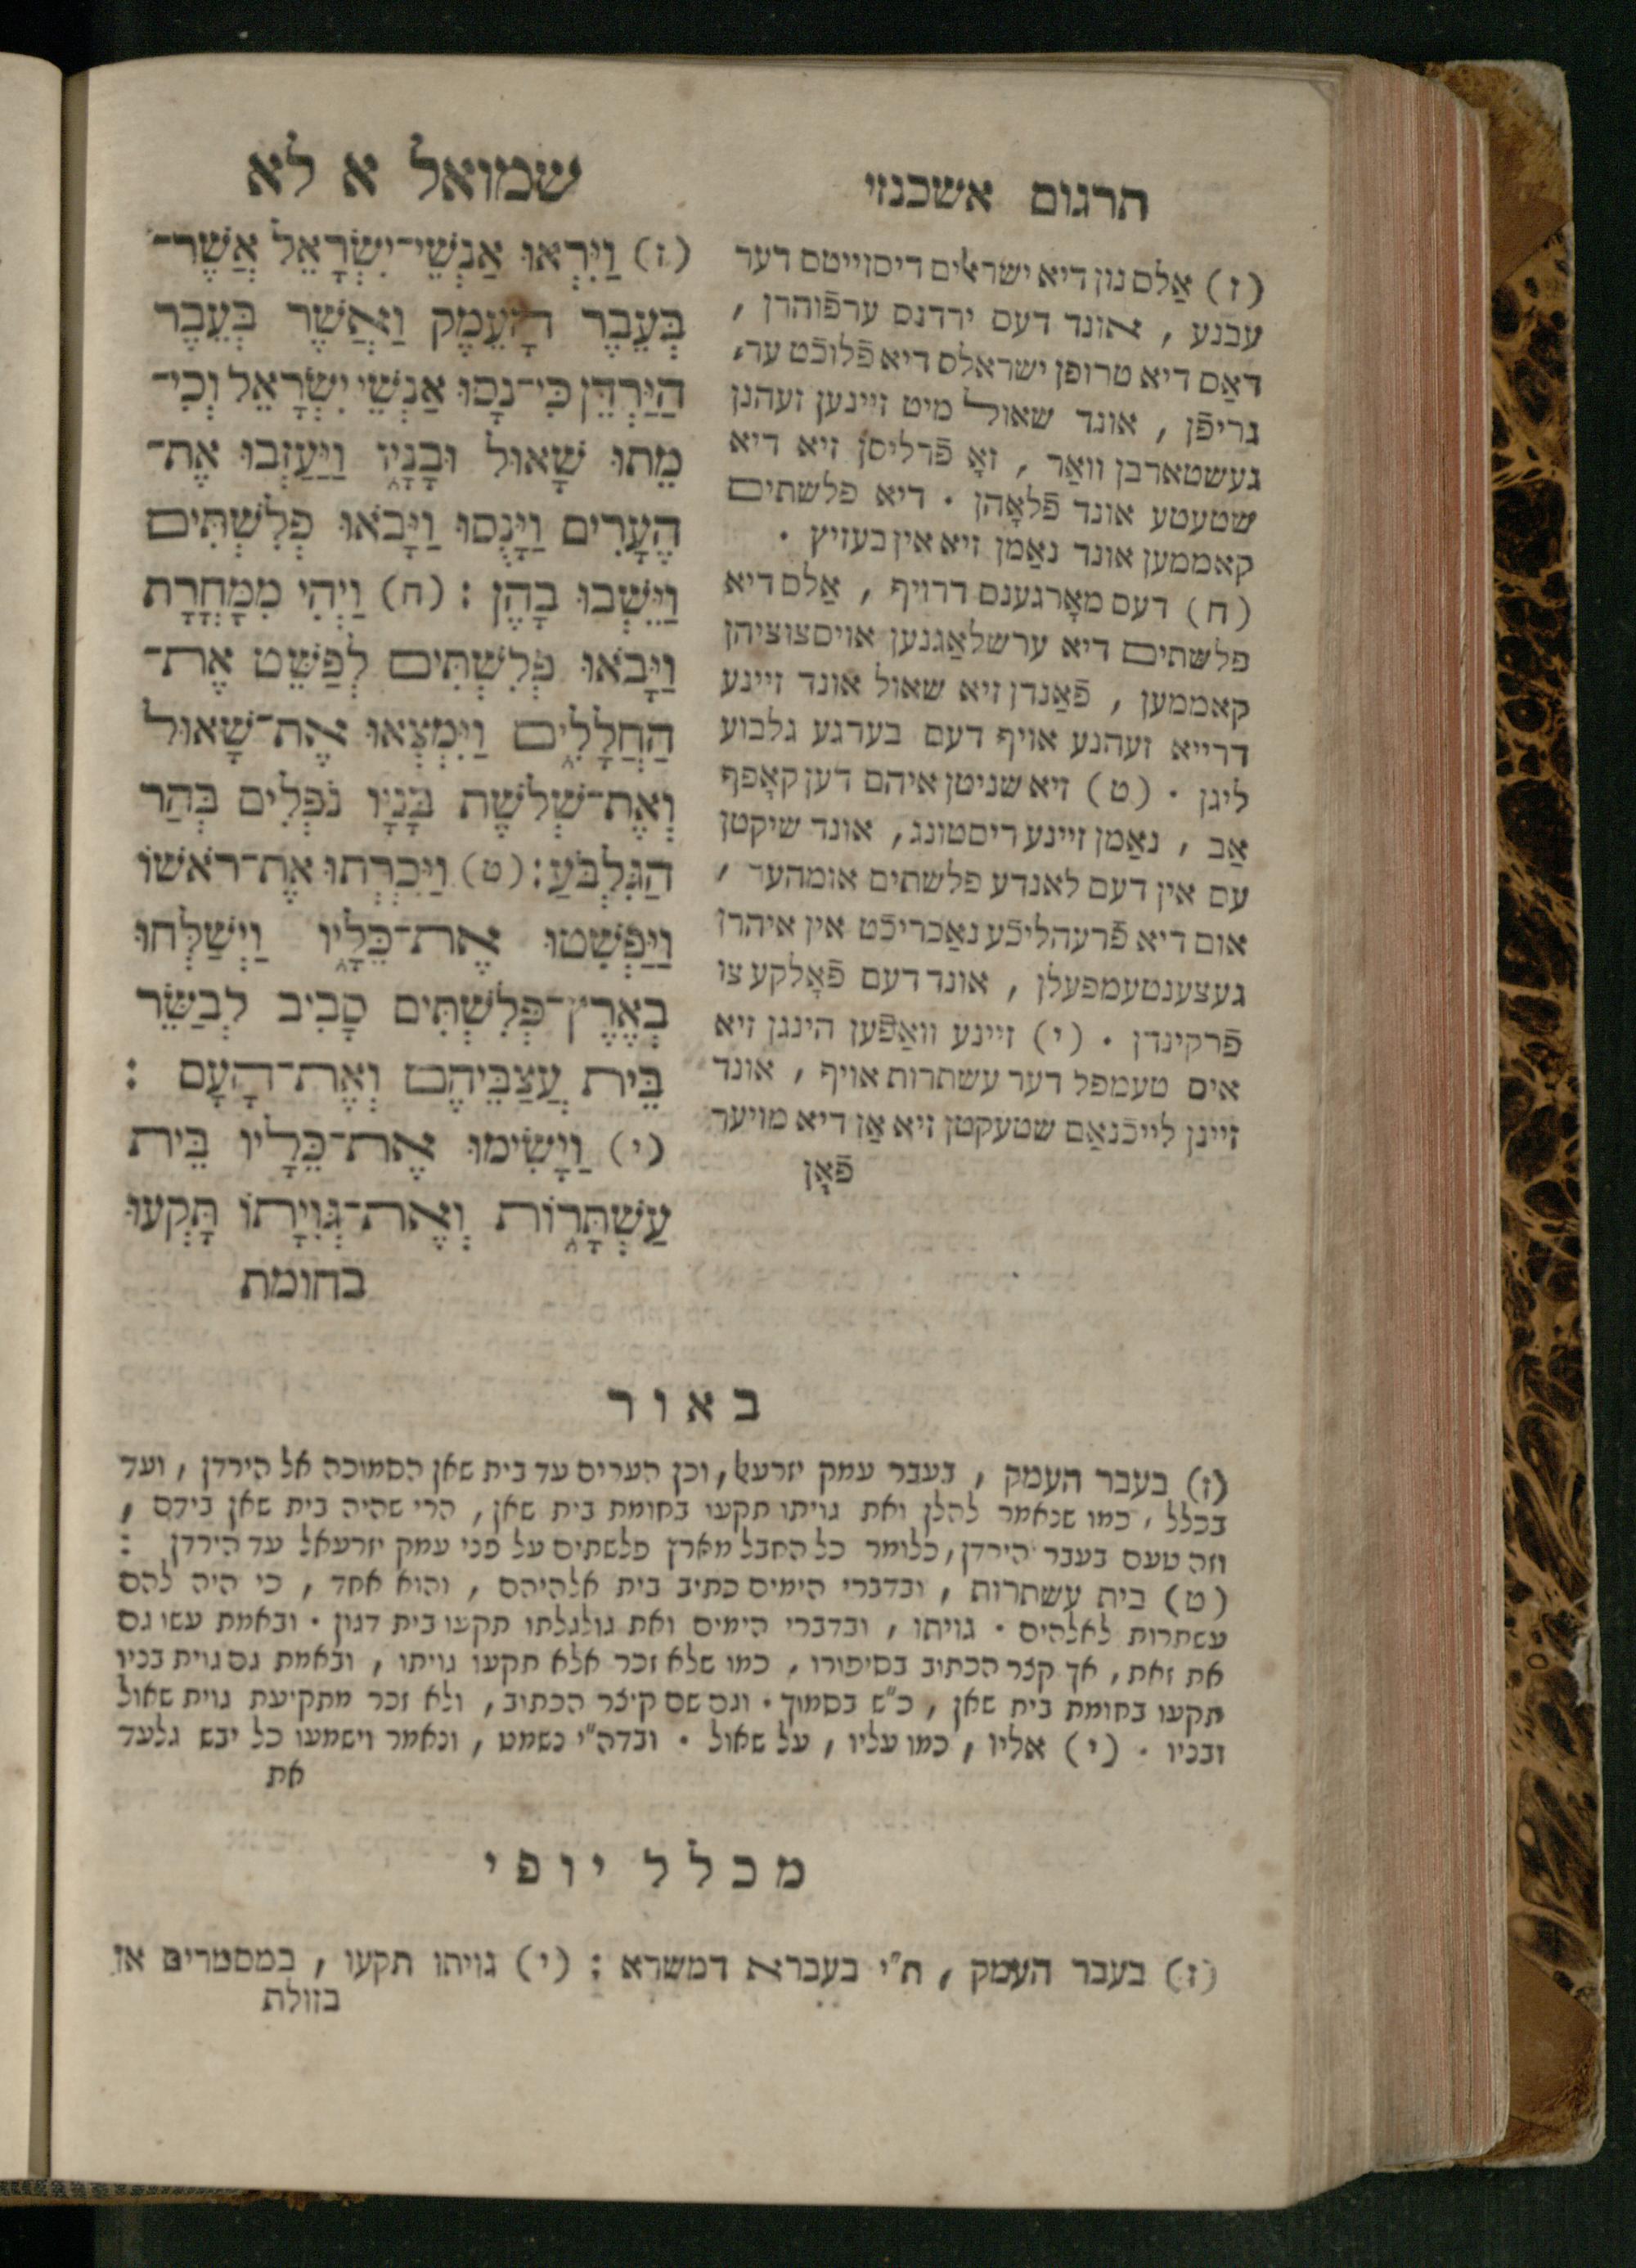 תרגום אשכנזי
(ז) אַלס נון דיא ישראלים דיסזייטס דער
עבנע , אונד דעס ירדנס ערפֿוהרן ,
דאַס דיא טרופן ישראלס דיא פֿלוכֿט ער⸗
גריפֿן , אונד שאול מיט זיינען זעהנן
געשטארבן וואַר , זאָ פֿרליסן זיא דיא
שטעטע אונד פֿלאָהן . דיא פלשתים
קאממען אונד נאַמן זיא אין בעזיץ .
(ח) דעס מאָרגענס דרויף , אַלס דיא
פלשתים דיא ערשלאַגנען אויסצוציהן
קאממען , פֿאַנדן זיא שאול אונד זיינע
דרייא זעהנע אויף דעם בערגע גלבוע
ליגן . (ט) זיא שניטן איהם דען קאָפף
אַב , נאַמן זיינע ריסטונג , אונד שיקטן
עס אין דעם לאנדע פלשתים אומהער ,
אום דיא פֿרעהליכֿע נאַכריכֿט אין איהרן
געצענטעמפעלן , אונד דעם פֿאָלקע צו
פֿרקינדן . (י) זיינע וואַפֿען הינגן זיא
אים טעמפל דער עשתרות אויף , אונד
זיינן לייכֿנאַם שטעקטן זיא אַן דיא מויער
פֿאָן
שמואל א לא
(ז) וַיִּרְאוּ אַנְשֵׁי־יִשְׂרָאֵל אֲשֶׁר־
בְּעֵבֶר הָעֵמֶק וַאֲשֶׁר בְּעֵבֶר
הַיַּרְדֵּן כִּי־נָסוּ אַנְשֵׁי יִשְׂרָאֵל וְכִי־
מֵתוּ שָׁאוּל וּבָנָיו וַיַּעַזְבוּ אֶת־
הֶעָרִים וַיָּנֻסוּ וַיָּבֹאוּ פְלִשְׁתִּים
וַיֵּשְׁבוּ בָהֶן : (ח) וַיְהִי מִמָּחֳרָת
וַיָּבֹאוּ פְלִשְׁתִּים לְפַשֵּׁט אֶת־
הַחֲלָלִים וַיִּמְצְאוּ אֶת־שָׁאוּל
וְאֶת־שְׁלֹשֶׁת בָּנָיו נֹפְלִים בְּהַר
הַגִּלְבֹּעַ : (ט) וַיִּכְרְתוּ אֶת־רֹאשׁוֹ
וַיַּפְשִׁטוּ אֶת־כֵּלָיו וַיְשַׁלְּחוּ
בְאֶרֶץ־פְּלִשְׁתִּים סָבִיב לְבַשֵּׂר
בֵּית עֲצַבֵּיהֶם וְאֶת־הָעָם :
(י) וַיָּשִׂימוּ אֶת־כֵּלָיו בֵּית
עַשְׁתָּרוֹת וְאֶת־גְּוִיָּתוֹ תָּקְעוּ
בחומת
באור
(ז) בעבר העמק , בעבר עמק יזרעאל , וכן הערים עד בית שאן הסמוכה אל הירדן , ועד
בכלל , כמו שנאמר להלן ואת גויתו תקעו בחומת בית שאן , הרי שהיה בית שאן בידם ,
וזה טעם בעבר הירדן , כלומר כל החבל מארץ פלשתים על פני עמק יזרעאל עד הירדן :
(ט) בית עשתרות , ובדברי הימים כתיב בית אלהיהם , והוא אחד , כי היה להם
עשתרות לאלהים . גויתו , ובדברי הימים ואת גולגלתו תקעו בית דגון . ובאמת עשו גם
את זאת , אך קצר הכתוב בסיפורו , כמו שלא זכר אלא תקעו גויתו , ובאמת גם גוית בניו
תקעו בחומת בית שאן , כ"ש בסמוך . וגם שם קיצר הכתוב , ולא זכר מתקיעת גוית שאול
ובניו . (י) אליו , כמו עליו , על שאול . ובדה"י נשמט , ונאמר וישמעו כל יבש גלעד
את
מכלל יופי
(ז) בעבר העמק , ת"י בעברא דמשרא : (י) גויתו תקעו , במסמרים או
בזולת